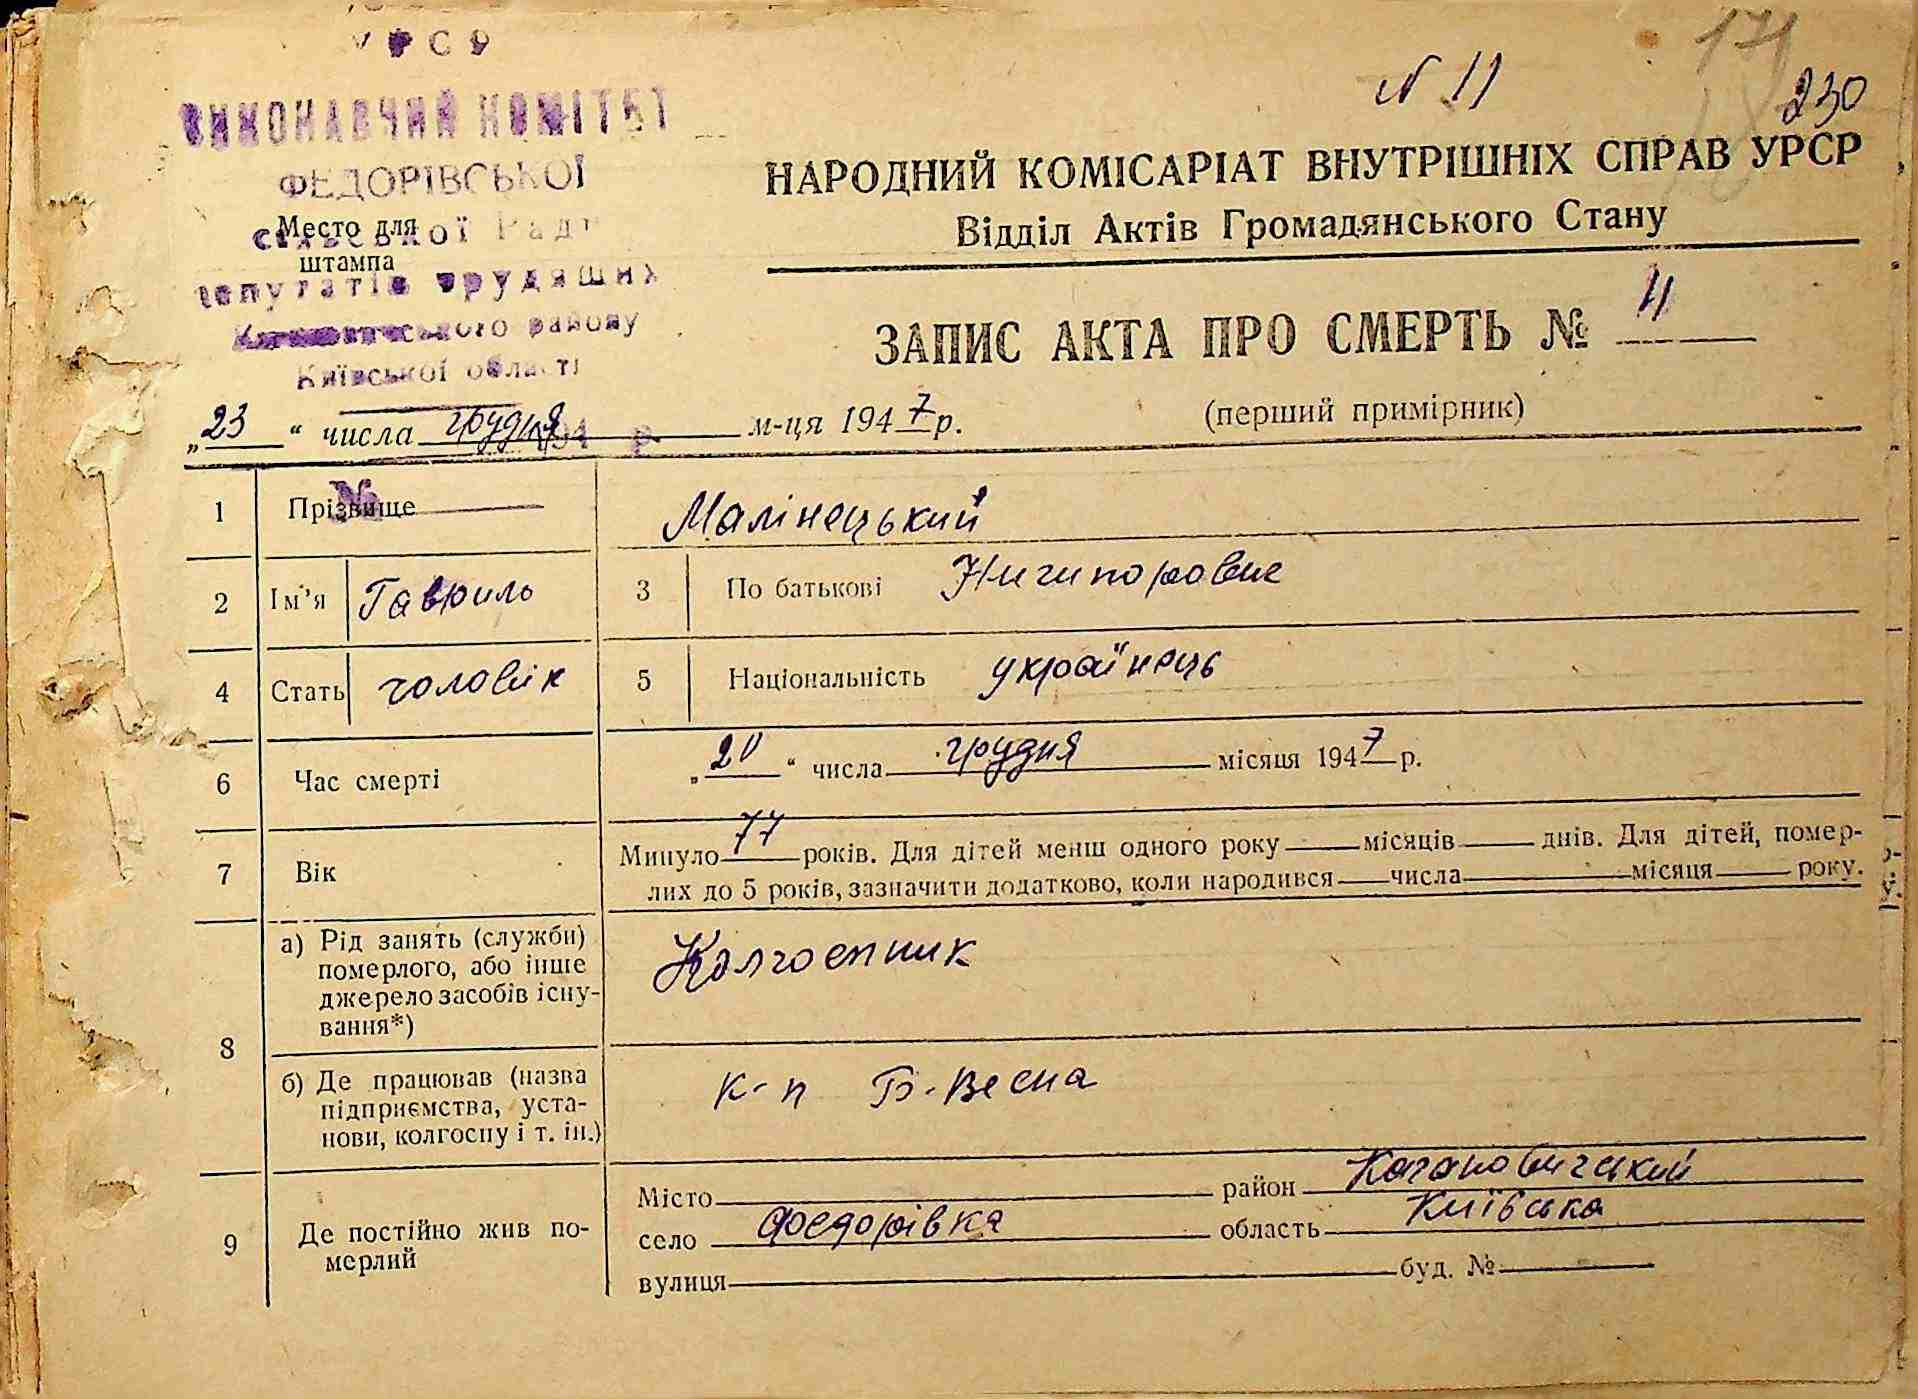 УРСР
№ 11
171
230
ВИКОНАВЧИЙ КОМІТЕТ
ФЕДОРІВСЬКОЇ
сільської Ради
Место для
штампа
депутатів трудящих
ського району
Київської області
194 р.
№
НАРОДНИЙ КОМІСАРІАТ ВНУТРІШНІХ СПРАВ УРСР
Відділ Актів Громадянського Стану
ЗАПИС АКТА ПРО СМЕРТЬ № 11
„23“ числа грудня м-ця 1947 р.
(перший примірник)
1 Прізвище Малінецький
2 Ім’я Гавриль 3 По батькові Ничипоровие
4 Стать чоловік 5 Національність українець
6 Час смерті „20“ числа грудня місяця 1947 р.
7 Вік Минуло 77 років. Для дітей менш одного року місяців днів. Для дітей, помер-
лих до 5 років, зазначити додатково, коли народився числа місяця року.
8 а) Рід занять (служби)
померлого, або інше
джерело засобів існу-
вання*)
Колгоспник
б) Де працював (назва
підприємства, уста-
нови, колгоспу і т. ін.)
к-п Б-Весна
9 Де постійно жив по-
мерлий
Місто район Кагановичський
село Федорівка область Київська
вулиця буд. №